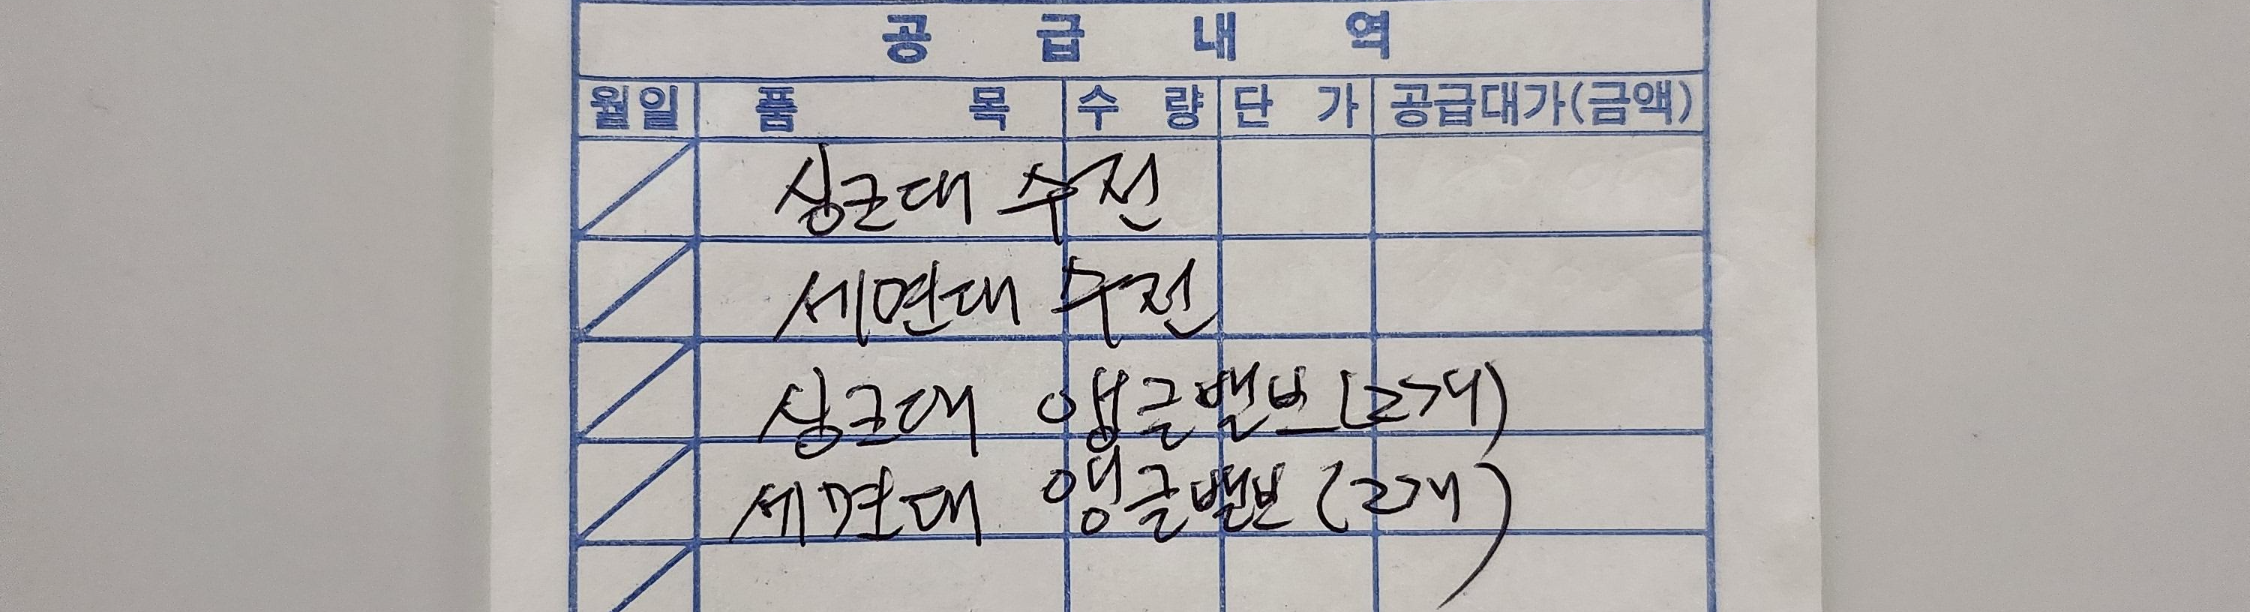 공급내역
월일 품목 수량 단가 공급대가(금액)
싱크대 수전
세면대 수전
싱크대 앵글밸브(2개)
세면대 앵글밸브(2개)